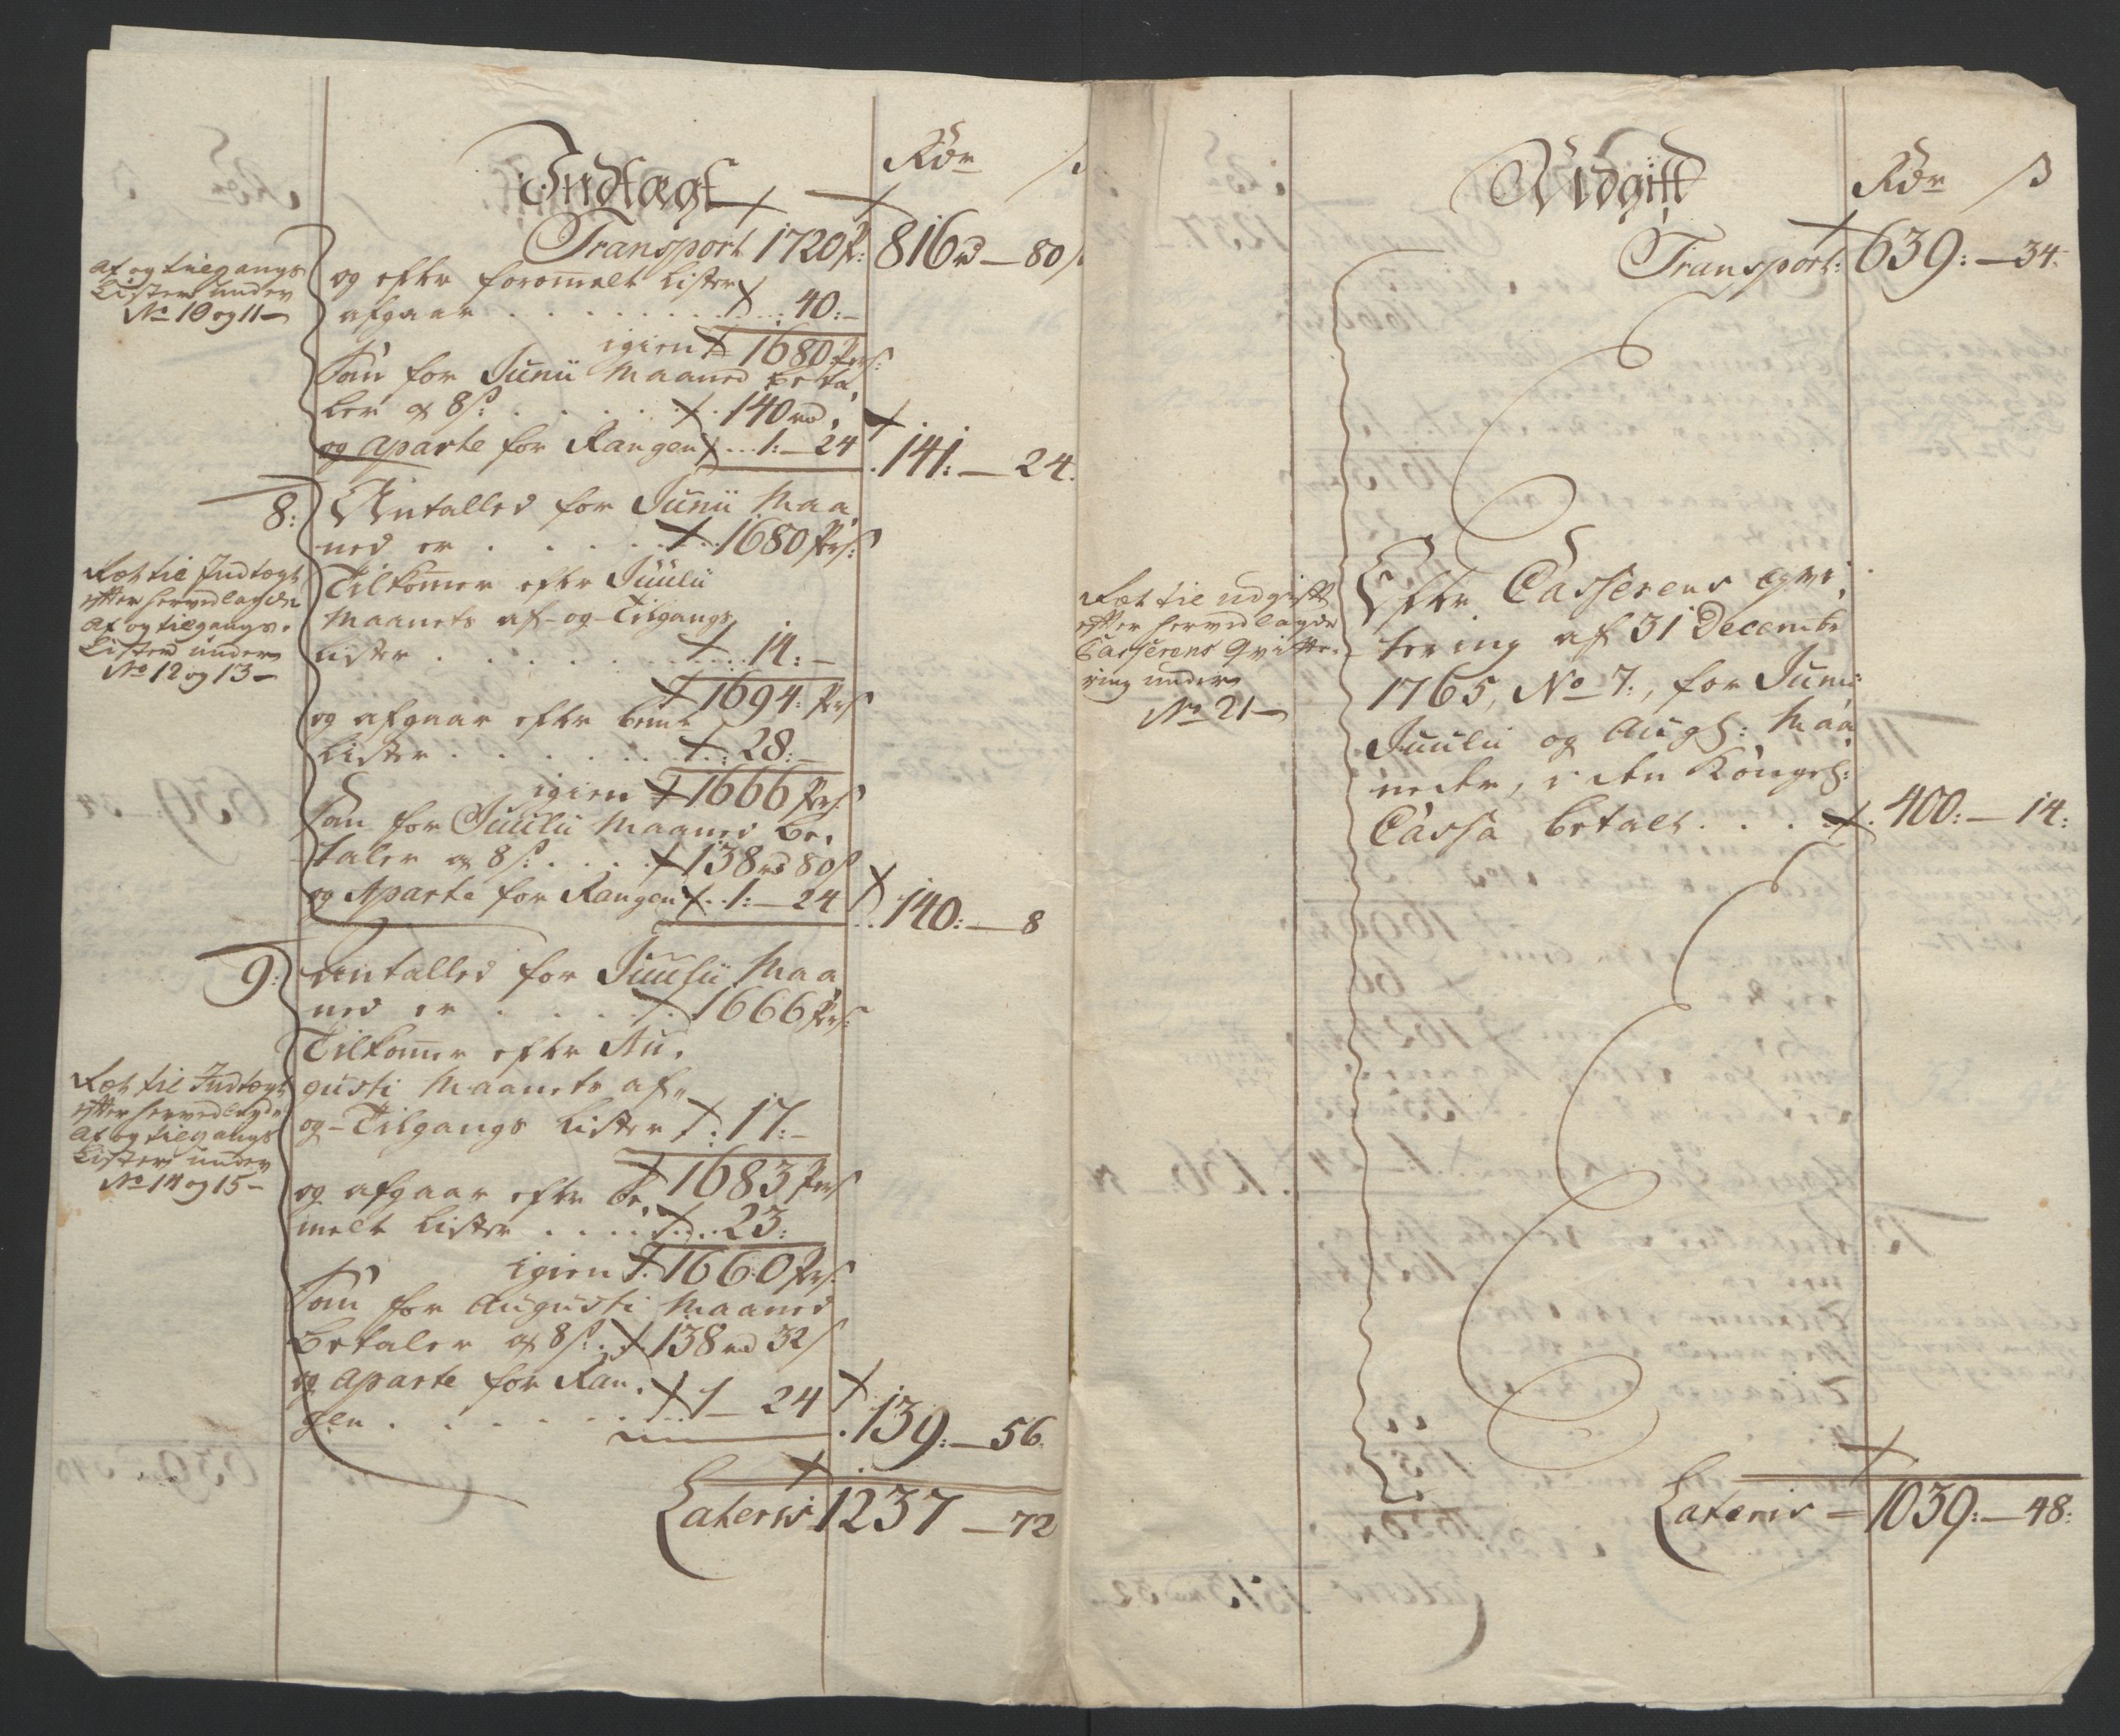 Indtægt
Rdr ß
Transport 1720 P: 816 rd — 80 ß
af og tilgangs
Lister under
No 10 og 11 —
og efter formelt Lister
afgaar . . . . 40: —
igien 1680 Prs:
som for Junii Maaned beta,
ler a 8 ß: . . . 140 rd,
og aparte for Rangen . . . 1: — 24
141: — 24.
8: Antalled for Junii Maa,
ned er . . . . . 1680 Prs:
Ført til Indtægt
efter hervedlagde
af og tilgangs.
Lister under
No 12 og 13 —
Tilkommer efter Juulii
Maanets af- og Tilgangs
Lister . . . . . 14: —
1694: Prs
og afgaar efter bemt
Lister . . . . . 28: —
igien 1666 Prs:
som for Juulii Maaned be,
taler a 8 ß: . . . 138 rd 80 ß
og Aparte for Rangen . . 1: — 24
140: — 8
9: Antalled for Juulii Maa,
ned er . . . . . 1666 Prs:
Tilkommer efter Au,
gusti Maanets af-
og Tilgangs Lister . 17: —
Ført til Indtægt
efter hervedlagde
af og tilgangs
Lister under
No 14 og 15 —
1683 Prs
og afgaar efter be,
melt Lister . . . . . 23:
igien . 1660 Prs:
som for Augusti Maaned
betaler a 8 ß: . 138 rd 32 ß
og aparte for Ran,
gen . . . . . . 1 — 24
139: — 56.
Lateris 1237 — 72
Udgift
Rdr ß
Transport: 639: — 34:
Ført til udgift
efter hervedlagde
Casserens Qvitte,
ring under
No 21 —
Efter Casserens Qvi,
tering af 31 Decembr
1765, No 7:, for Junii
Juulii og Aug: Maa,
neder, i den Kongel:
Cassa betalt . . . . 400: — 14:
Lateris — 1039: — 48: